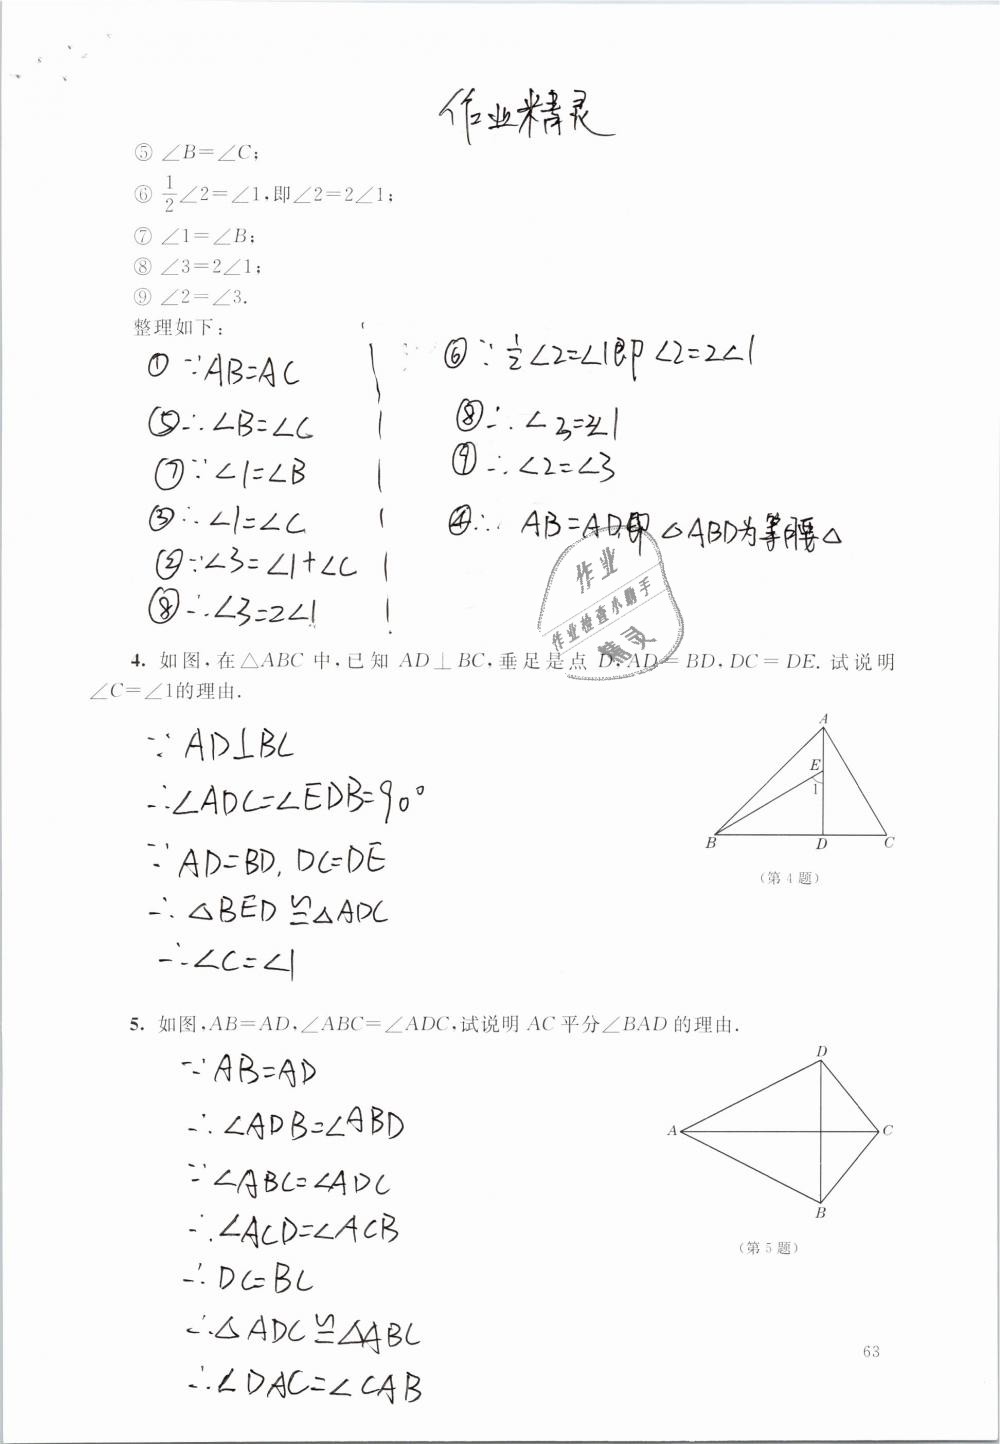 作业精灵
⑤ ∠B=∠C;
⑥ 1/2∠2=∠1,即∠2=2∠1;
⑦ ∠1=∠B;
⑧ ∠3=2∠1;
⑨ ∠2=∠3.
整理如下:
① ∵AB=AC
⑤∴∠B=∠C
⑦∵∠1=∠B
③∴∠1=∠C
②∵∠3=∠1+∠C
⑧∴∠3=2∠1
⑥∵1/2∠2=∠1即∠2=2∠1
⑧∴∠3=2∠1
⑨∴∠2=∠3
④∴AB=AD,即△ABD为等腰△
作业
作业检查小助手
精灵
4. 如图,在△ABC中,已知AD⊥BC,垂足是点D,AD=BD,DC=DE.试说明
∠C=∠1的理由.
∵AD⊥BC
∴∠ADC=∠EDB=90°
∵AD=BD,DC=DE
∴△BED≌△ADC
∴∠C=∠1
A
E
1
B
D
C
(第4题)
5. 如图,AB=AD,∠ABC=∠ADC,试说明AC平分∠BAD的理由.
∵AB=AD
∴∠ADB=∠ABD
∵∠ABC=∠ADC
∴∠ACD=∠ACB
∴DC=BC
∴△ADC≌△ABC
∴∠DAC=∠CAB
D
A
C
B
(第5题)
63